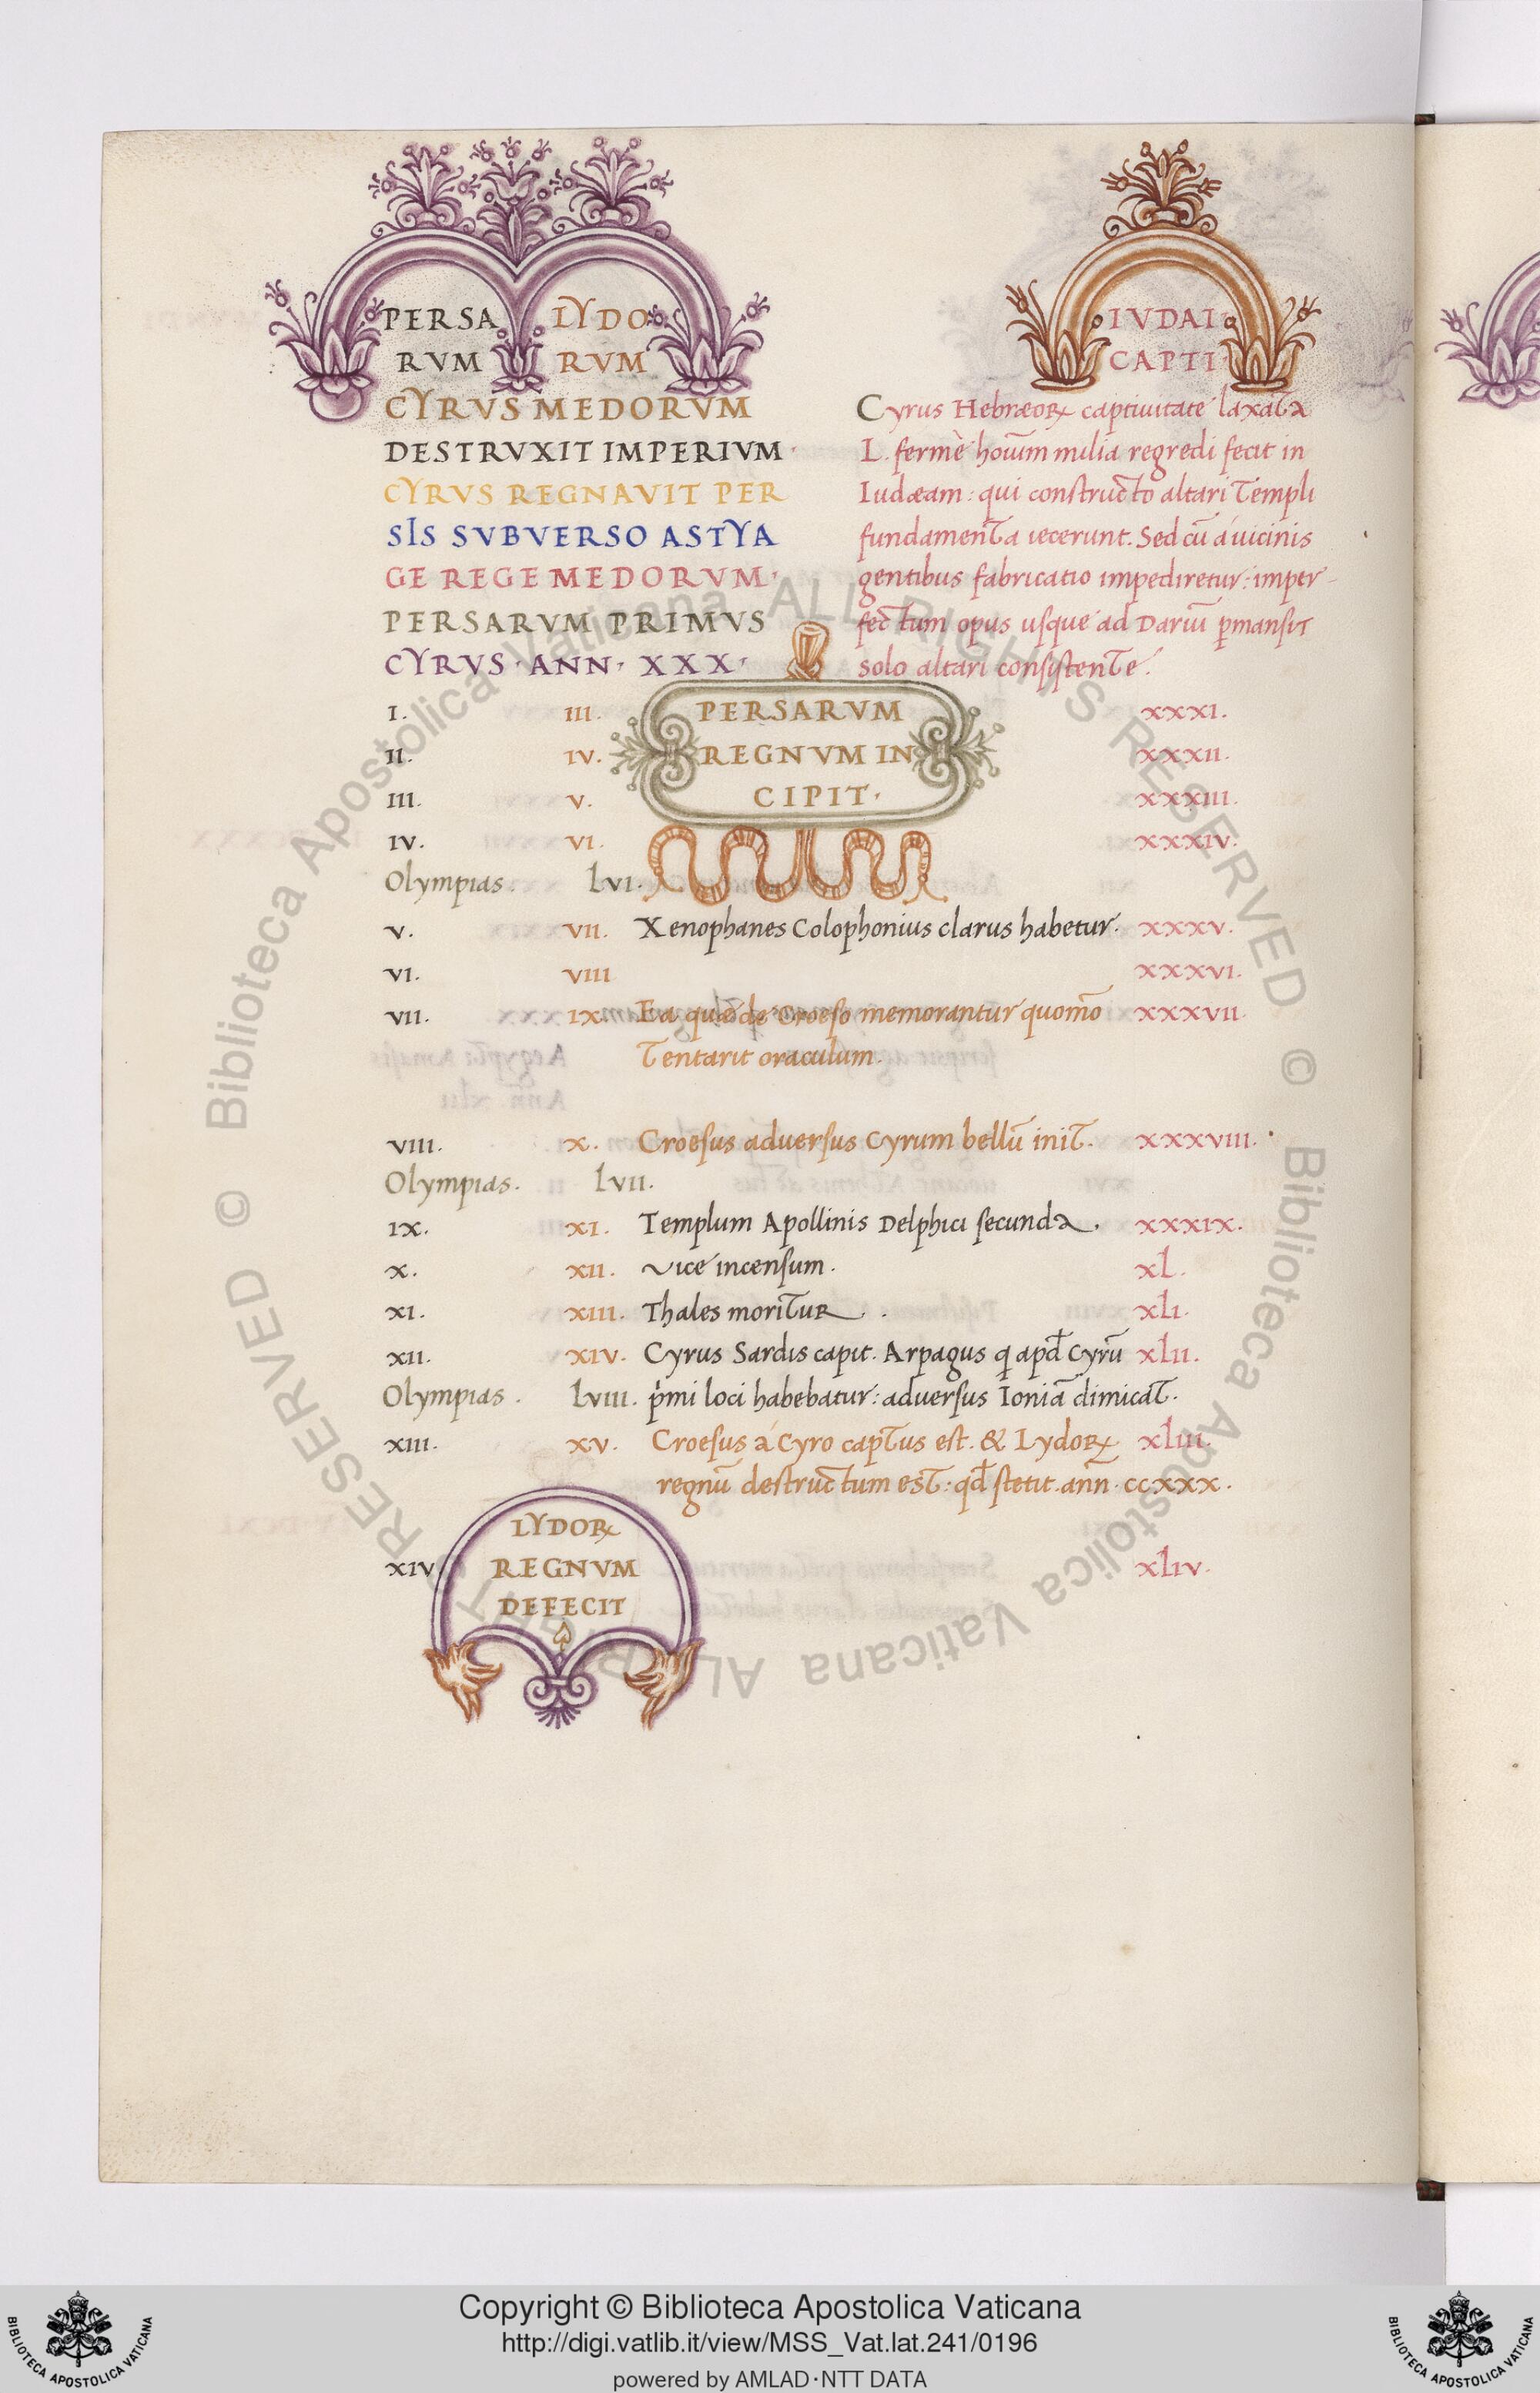 PERSA LYDO IVDAI
RVM RVM CAPTI
CYRVS MEDORVM
DESTRVXIT IMPERIVM·
CYRVS REGNAVIT PER
SIS SVBVERSO ASTYA
GE REGE MEDORVM·
PERSARVM PRIMVS
CYRVS· ANN· XXX·
Cyrus Hebræoꝝ captiuitate laxata
L. fermè hoı̅um milia regredi fecit in
Iudæam: qui constructo altari Templi
fundamenta iecerunt. Sed cū á uicinis
gentibus fabricatio impediretur: imper-
fectum opus usque ad Dariū ꝑmansit
solo altari consistente.
I. III. PERSARVM XXXI.
II. IV. REGNVM IN XXXII.
III. V. CIPIT· XXXIII.
IV. VI. XXXIV.
Olympias. LVI.
V. VII. Xenophanes Colophonius clarus habetur. XXXV.
VI. VIII XXXVI.
VII. IX. Ea quæ de Croeso memorantur quomō XXXVII.
Tentarit oraculum.
VIII. X. Croesus aduersus Cyrum bellū init. XXXVIII.
Olympias. LVII.
IX. XI. Templum Apollinis Delphici secunda. XXXIX.
X. XII. Vice incensum. XL.
XI. XIII. Thales moritur. XLI.
XII. XIV. Cyrus Sardis capit. Arpagus q apd̄ Cyrū XLII.
Olympias. LVIII. pͥmi loci habebatur: aduersus Ioniā dimicat.
XIII. XV. Croesus á Cyro captus est. & Lydoꝝ XLIII.
regnū destructum est: qd̄ stetit. ann̄. CCXXX.
LYDOꝝ
XIV. REGNVM XLIV.
DEFECIT
© Biblioteca Apostolica Vaticana ALL RIGHTS RESERVED © Biblioteca Apostolica Vaticana ALL RIGHTS RESERVED
Copyright © Biblioteca Apostolica Vaticana
http://digi.vatlib.it/view/MSS_Vat.lat.241/0196
powered by AMLAD·NTT DATA
BIBLIOTECA APOSTOLICA VATICANA
BIBLIOTECA APOSTOLICA VATICANA